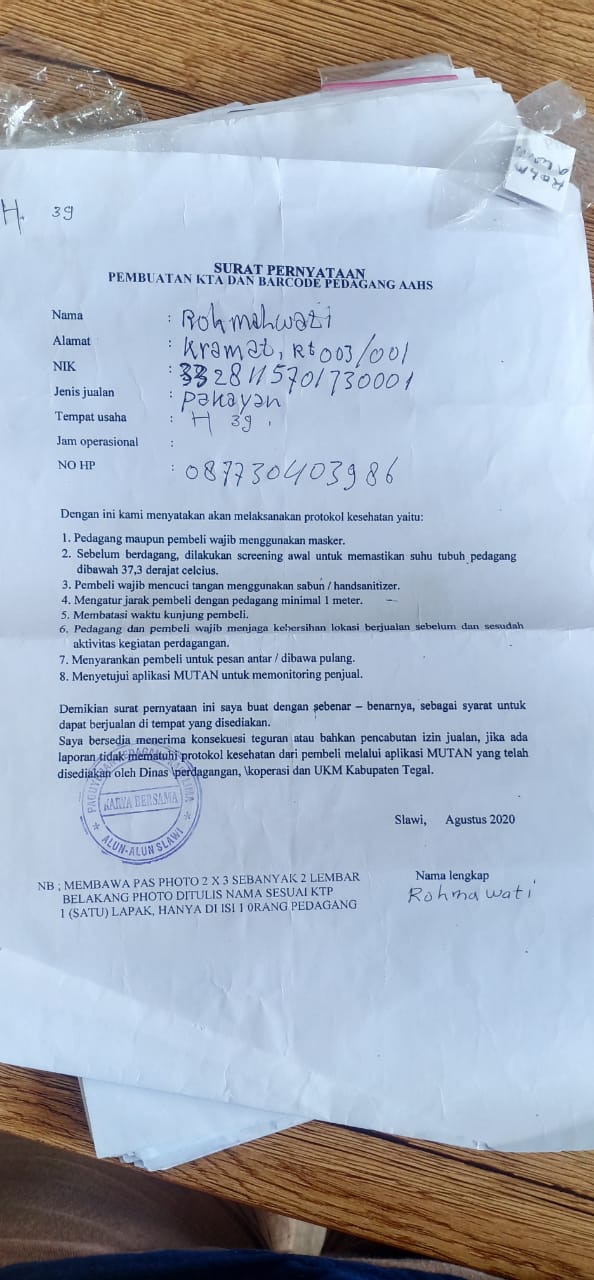 Rohm
a wati
H. 39
SURAT PERNYATAAN
PEMBUATAN KTA DAN BARCODE PEDAGANG AAHS
Nama : Rohmahwati
Alamat : Kramat, Rt 003/001
NIK : 3328115701730001
Jenis jualan : Pakayan
Tempat usaha : H 39.
Jam operasional :
NO HP : 087730403986
Dengan ini kami menyatakan akan melaksanakan protokol kesehatan yaitu:
1. Pedagang maupun pembeli wajib menggunakan masker.
2. Sebelum berdagang, dilakukan screening awal untuk memastikan suhu tubuh pedagang
dibawah 37,3 derajat celcius.
3. Pembeli wajib mencuci tangan menggunakan sabun / handsanitizer.
4. Mengatur jarak pembeli dengan pedagang minimal 1 meter.
5. Membatasi waktu kunjung pembeli.
6. Pedagang dan pembeli wajib menjaga kebersihan lokasi berjualan sebelum dan sesudah
aktivitas kegiatan perdagangan.
7. Menyarankan pembeli untuk pesan antar / dibawa pulang.
8. Menyetujui aplikasi MUTAN untuk memonitoring penjual.
Demikian surat pernyataan ini saya buat dengan sebenar – benarnya, sebagai syarat untuk
dapat berjualan di tempat yang disediakan.
Saya bersedia menerima konsekuesi teguran atau bahkan pencabutan izin jualan, jika ada
laporan tidak mematuhi protokol kesehatan dari pembeli melalui aplikasi MUTAN yang telah
disediakan oleh Dinas \perdagangan, \koperasi dan UKM Kabupaten Tegal.
PAGUYUBAN PEDAGANG KAKI LIMA
KARYA BERSAMA
* ALUN-ALUN SLAWI *
Slawi, Agustus 2020
NB ; MEMBAWA PAS PHOTO 2 X 3 SEBANYAK 2 LEMBAR
BELAKANG PHOTO DITULIS NAMA SESUAI KTP
1 (SATU) LAPAK, HANYA DI ISI 1 0RANG PEDAGANG
Nama lengkap
Rohma wati